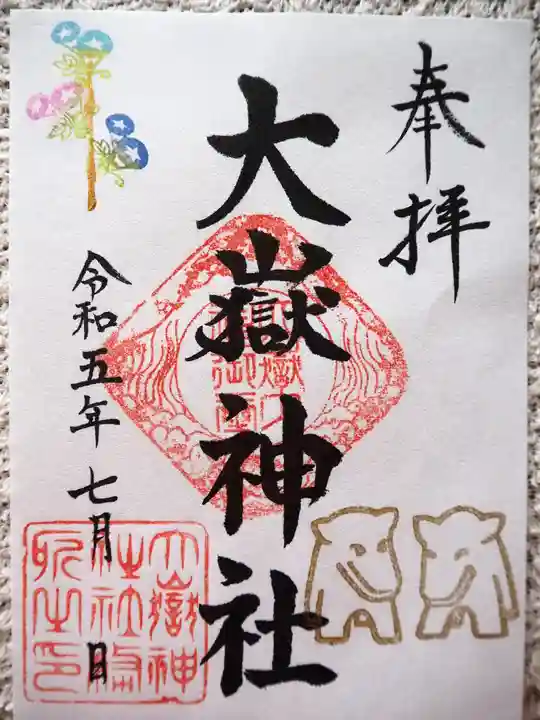 奉拝
大嶽神社
令和五年七月 日
大嶽神
社社務
所之印